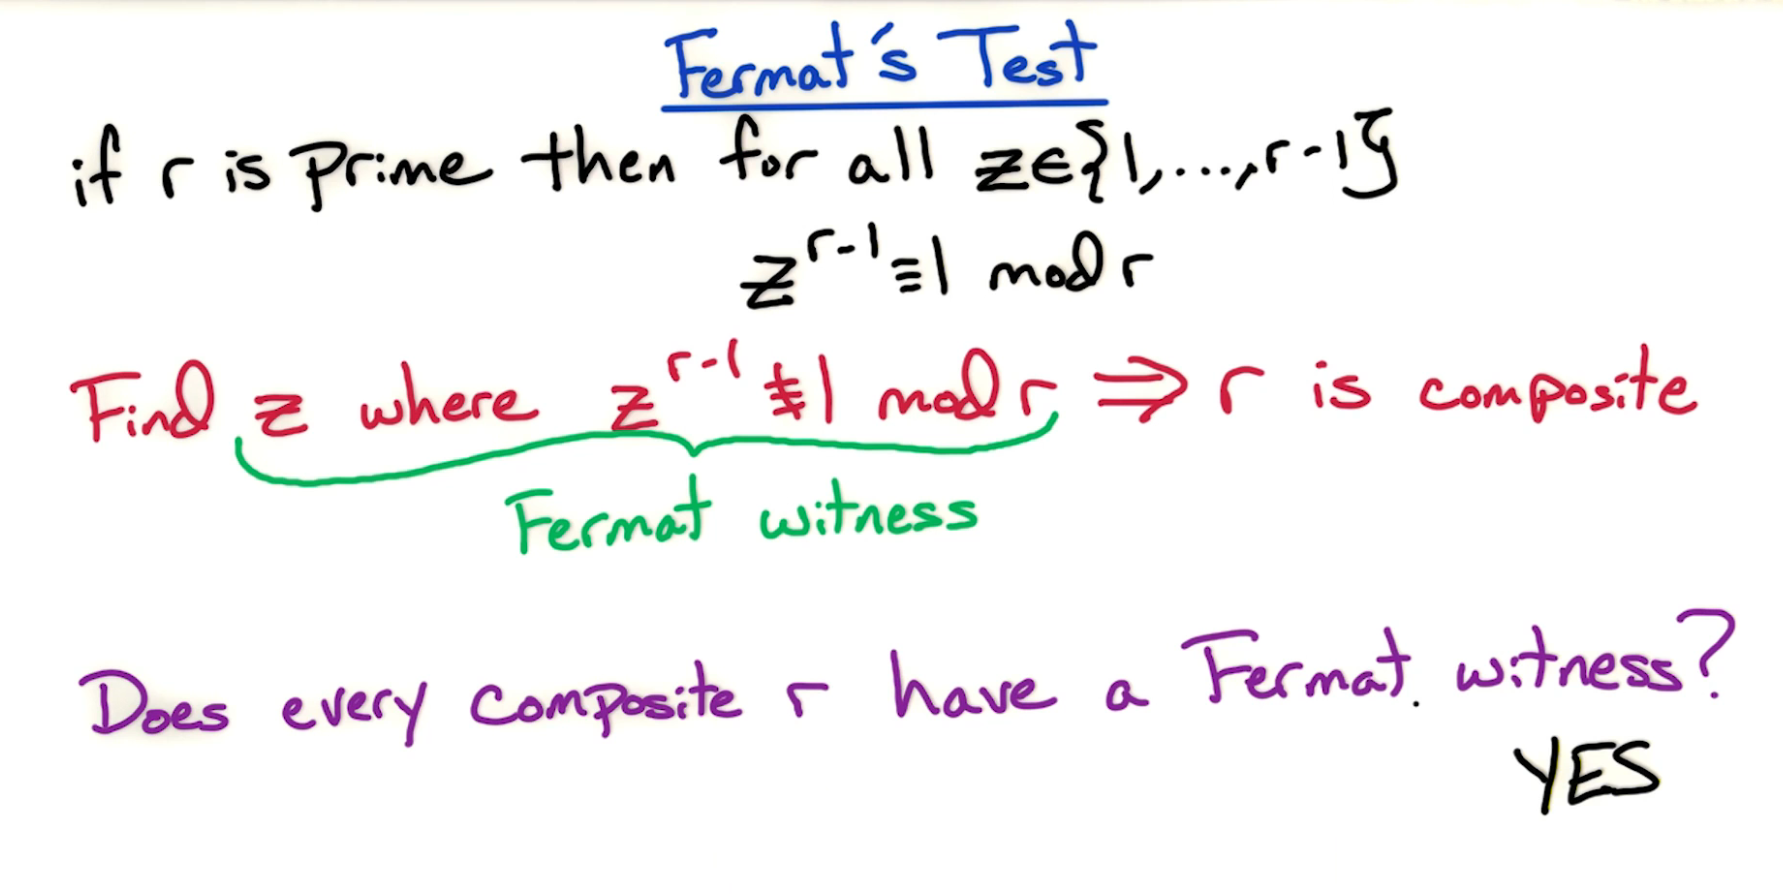 Fermat's Test
if r is prime then for all z∈{1,...,r-1}
z^{r-1}≡1 mod r
Find z where z^{r-1}≢1 mod r ⇒ r is composite
Fermat witness
Does every composite r have a Fermat witness?
YES